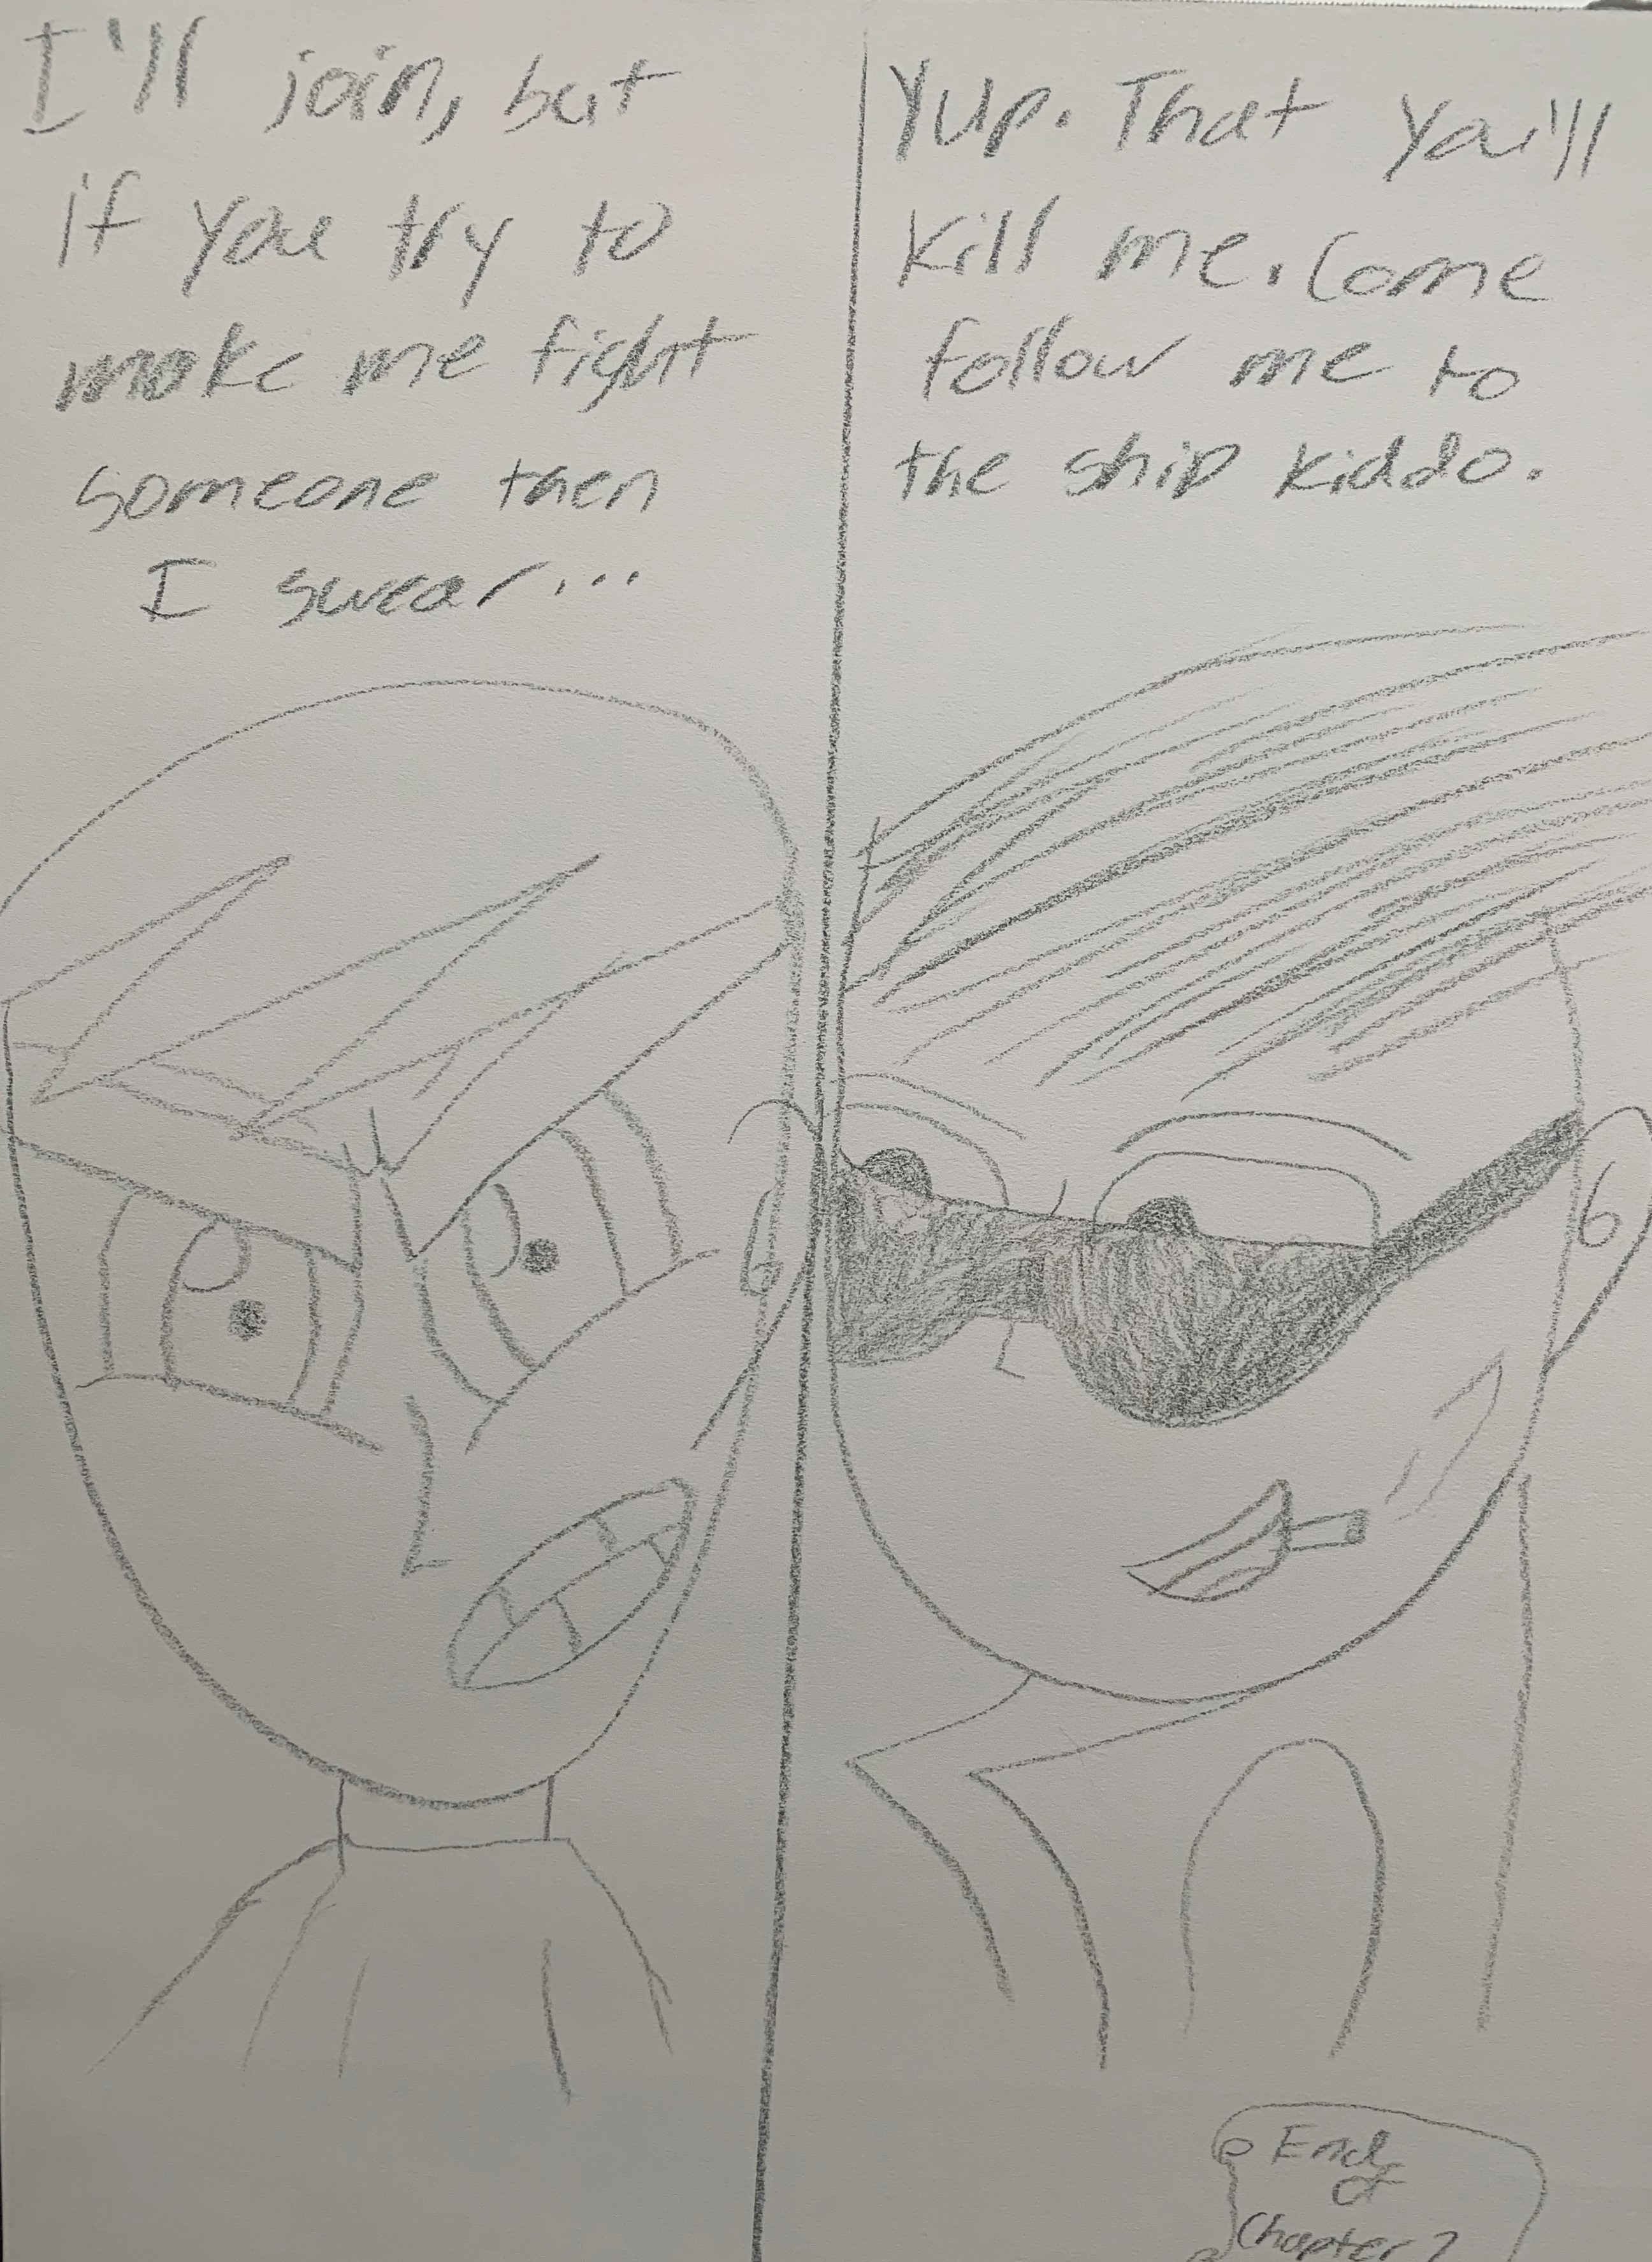 I'll join, but
if you try to
make me fight
someone then
I swear...
Yup. That you'll
kill me. Come
follow me to
the ship kiddo.
End
of
Chapter